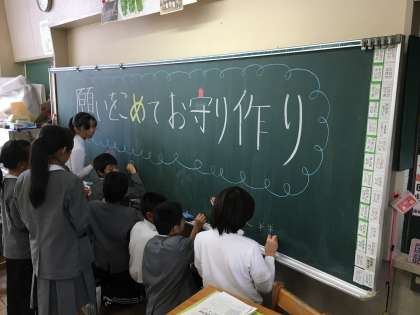 願いをこめてお守り作り